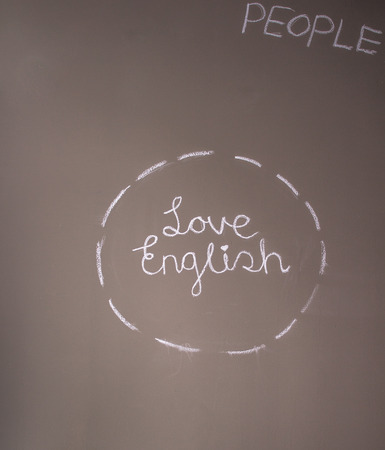 PEOPLE
Love
English